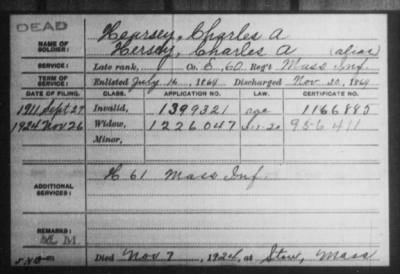 DEAD
NAME OF SOLDIER: Hearsey, Charles A
Hersey, Charles A (alias)
SERVICE: Late rank, Co. E, 60, Reg't Mass Inf
TERM OF SERVICE: Enlisted July 14, 1864 Discharged Nov. 30, 1864
DATE OF FILING. CLASS. APPLICATION NO. LAW. CERTIFICATE NO.
1911 Sept 27 Invalid, 1399321 age 1166885
1924 Nov 26 Widow, 1226047 956411
Minor,
ADDITIONAL SERVICES: H 61 Mass Inf.
REMARKS:
Died Nov. 7, 1924, at Stow, Mass